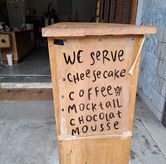 WE SERVE
• CHEESECAKE
• COFFEE
• MOCKTAIL
• CHOCOLAT
MOUSSE